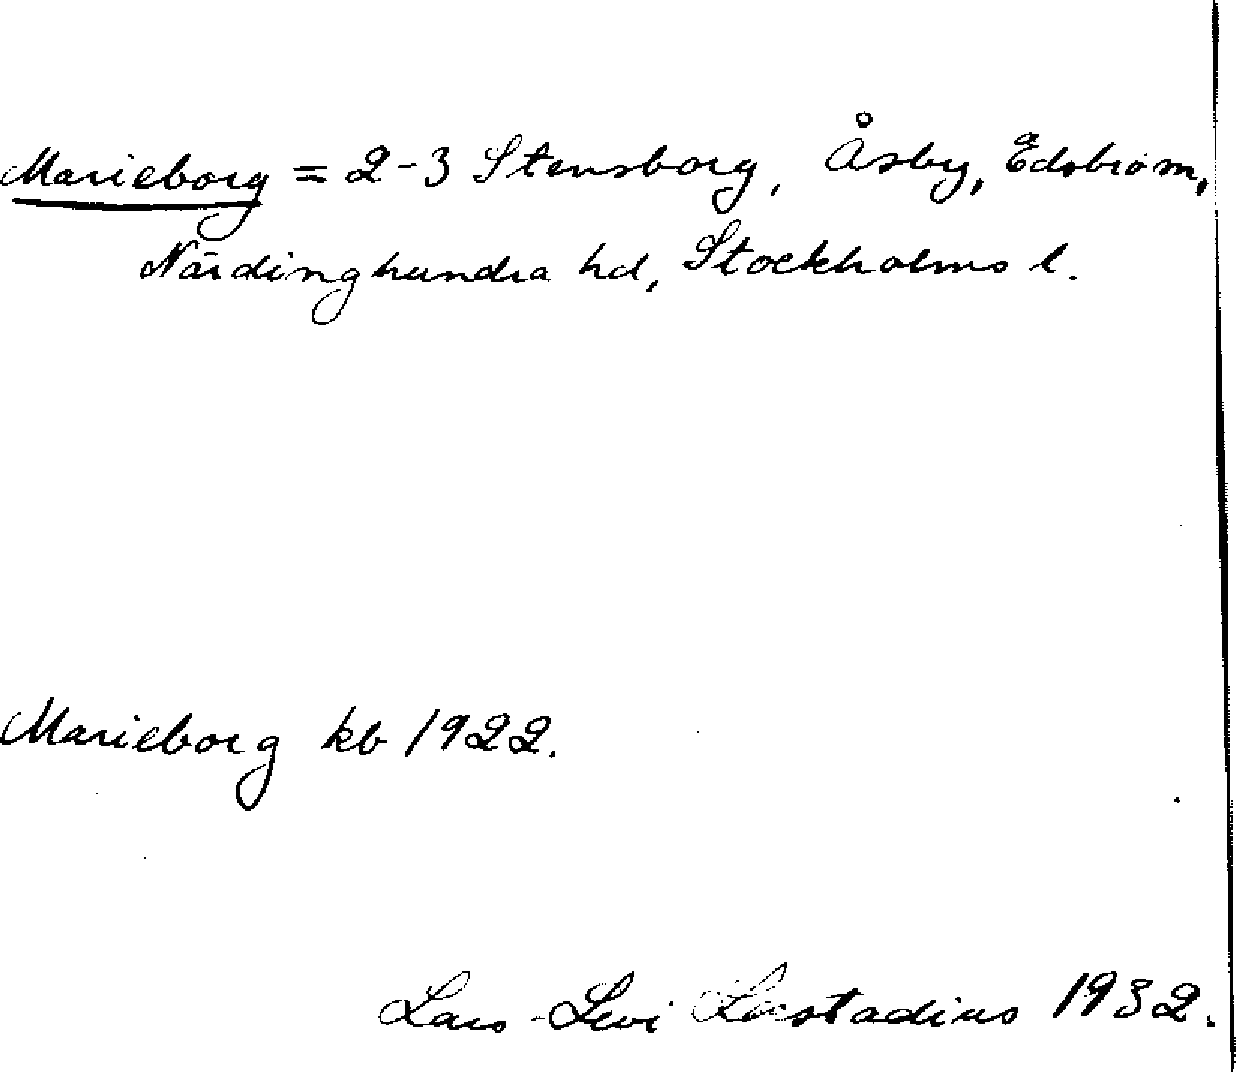 Marieborg = 2-3 Stensborg, Åsby, Edsbro sn,
Närdinghundra hd, Stockholms l.
Marieborg kb 1922.
Lars-Levi Læstadius 1932.